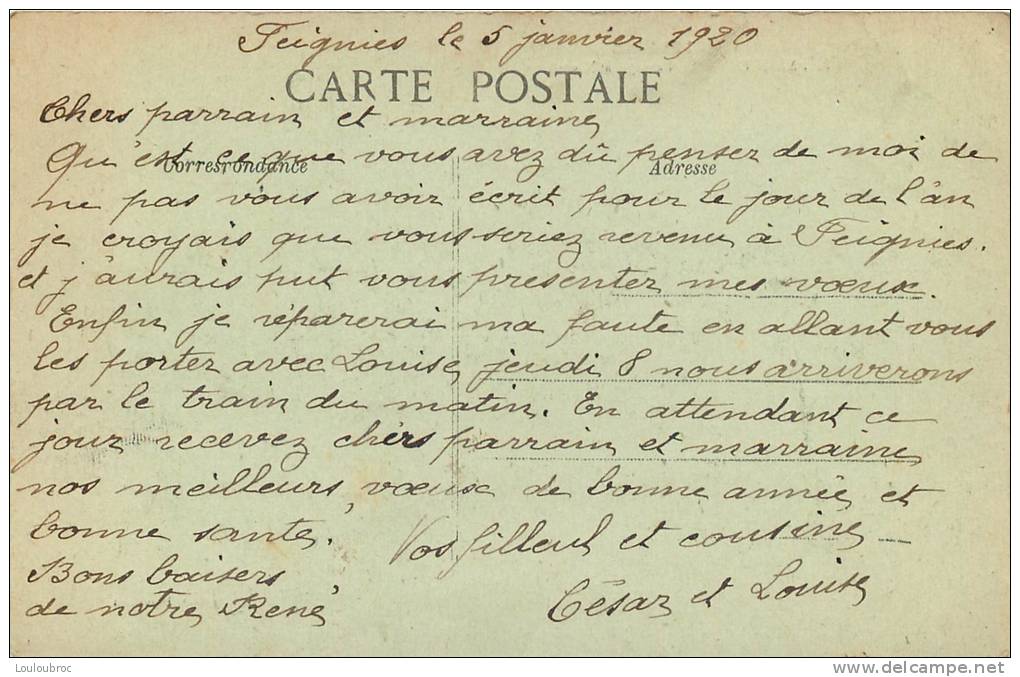 Feignies le 5 janvier 1920
CARTE POSTALE
Chers parrain et marraine
Correspondance
Adresse
Qu'est ce que vous avez dû penser de moi de
ne pas vous avoir écrit pour le jour de l'an
je croyais que vous seriez revenu à Feignies.
et j'aurais put vous presenter mes vœux.
Enfin je réparerai ma faute en allant vous
les porter avec Louise, jeudi 8 nous arriverons
par le train du matin. En attendant ce
jour recevez chers parrain et marraine
nos meilleurs vœux de bonne année et
bonne santé.
Vos filleul et cousine
Bons baisers
de notre René
César et Louise
Louloubroc
www.delcampe.net